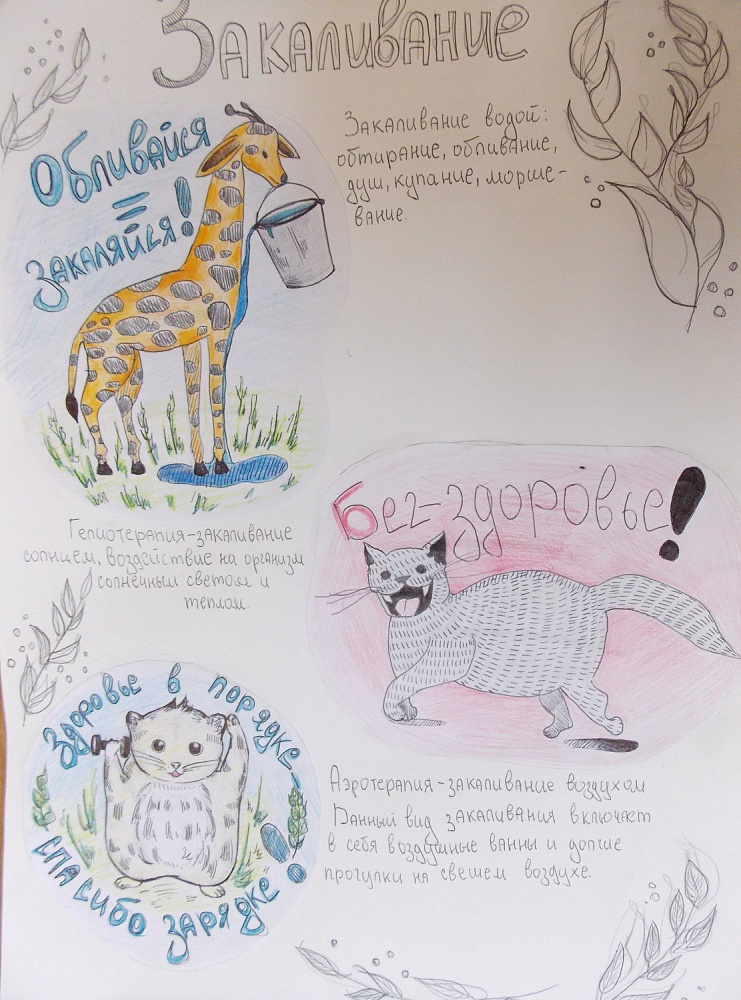 Закаливание
Обливайся
=
закаляйся!
Закаливание водой:
обтирание, обливание,
душ, купание, морше-
вание.
Гелиотерапия-закаливание
солнцем, воздействие на организм
солнечным светом и
теплом.
Бег-здоровье!
Здоровье в порядке-
спасибо зарядке!
Аэротерапия-закаливание воздухом
Данный вид закаливания включает
в себя воздушные ванны и долгие
прогулки на свешем воздухе.